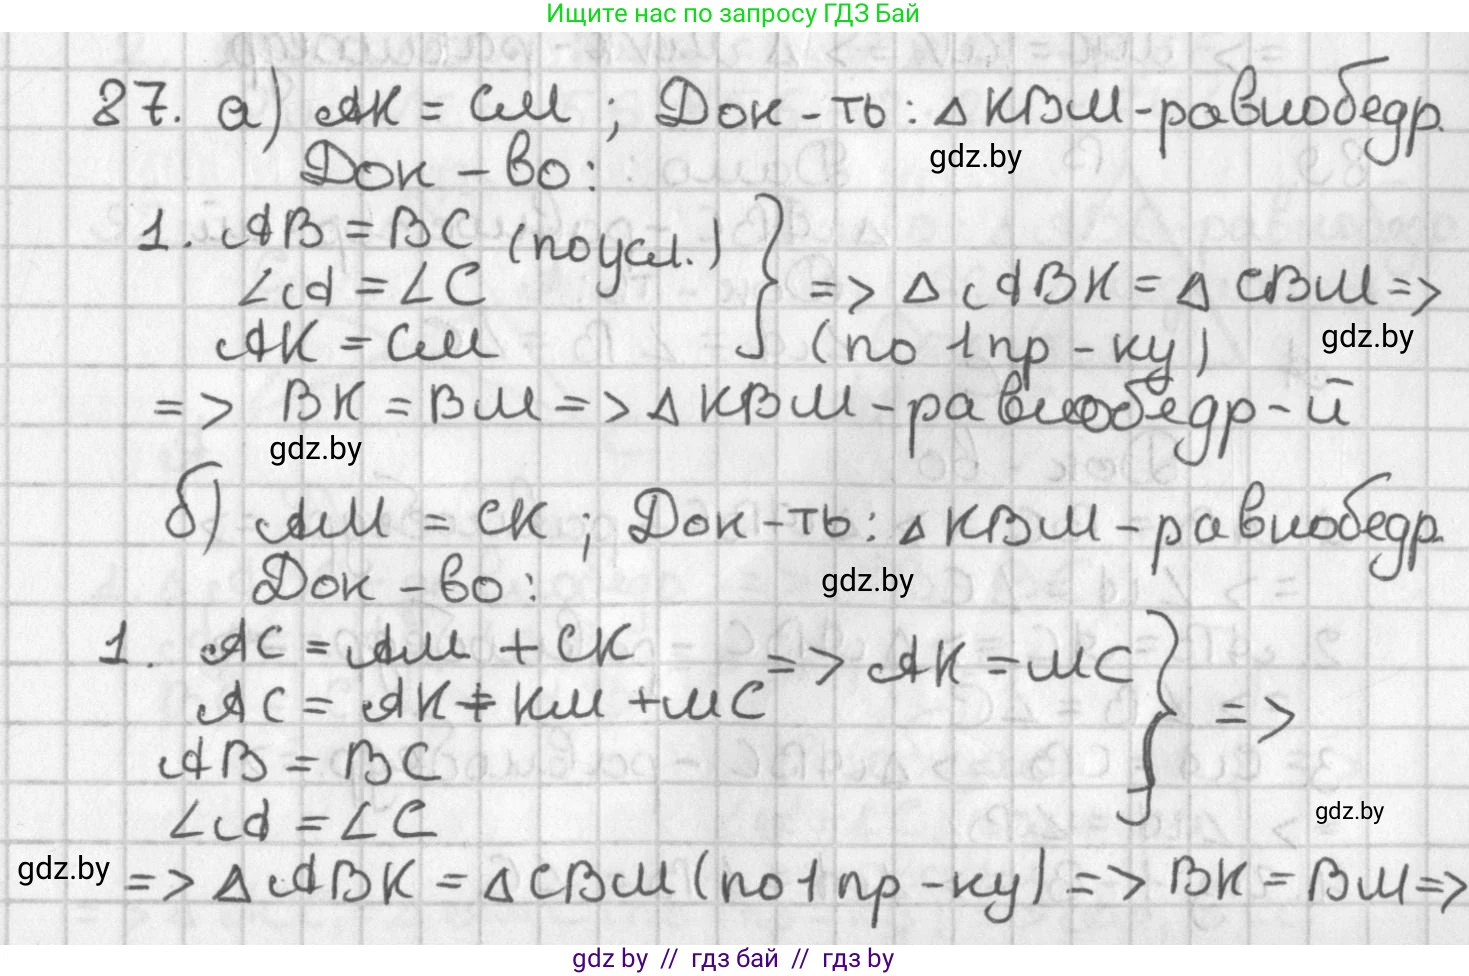 Ищите нас по запросу ГДЗ Бай
87. а) AK = CM ; Док-ть: △KBM-равнобедр.
gdz.by
Док-во:
1. AB = BC (по усл.)
∠A = ∠C } => △ABK = △CBM =>
AK = CM (по 1 пр-ку)
gdz.by
=> BK = BM => △KBM-равнобедр-й
gdz.by
б) AM = CK ; Док-ть: △KBM-равнобедр.
Док-во:
gdz.by
1. AC = AM + CK
AC = AK + KM + MC => AK = MC } =>
AB = BC
∠A = ∠C
gdz.by
gdz.by
=> △ABK = △CBM (по 1 пр-ку) => BK = BM =>
gdz by // гдз бай // гдз by